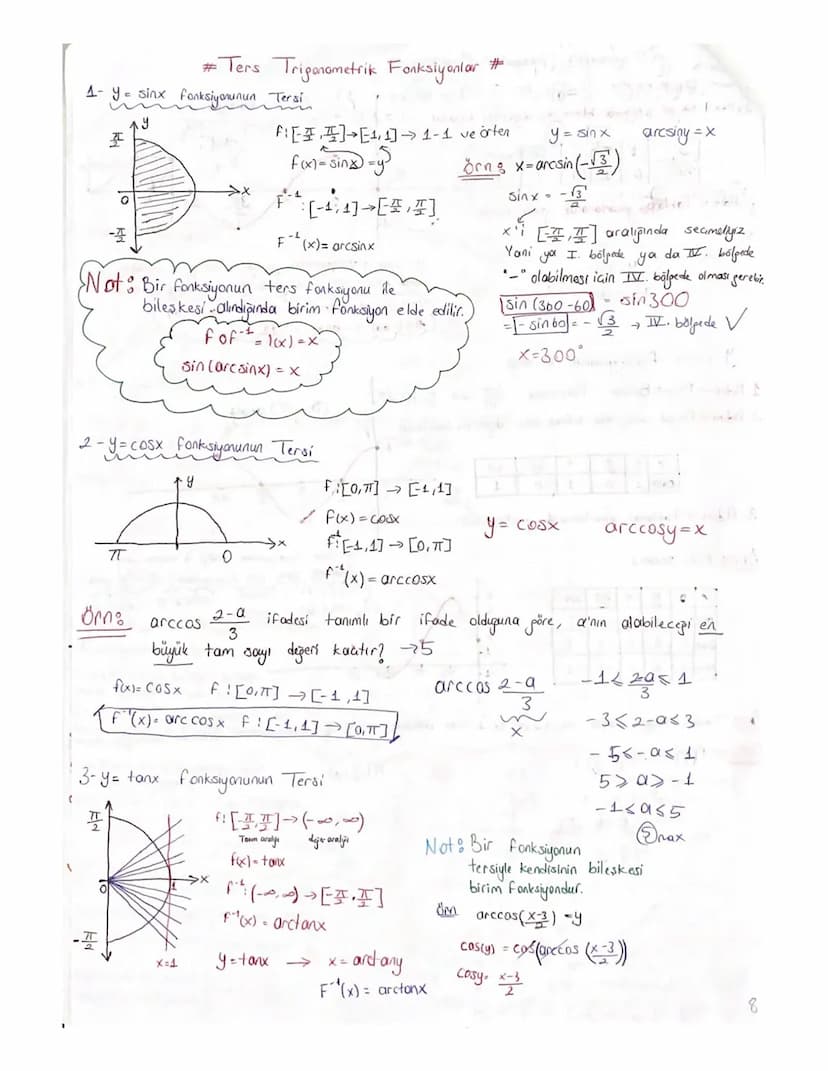 # Ters Trigonometrik Fonksiyonlar #
1- y = sinx fonksiyonunun Tersi
π/2
y
x
0
-π/2
f:[-π/2, π/2]→[-1,1]→ 1-1 ve örten
f(x)=sinx=y
f⁻¹:[-1,1]→[-π/2, π/2]
F⁻¹(x)= arcsinx
y = sinx arcsiny = x
Örn: x=arcsin(-√3/2)
sinx = -√3/2
x'i [-π/2, π/2] aralığında seçmeliyiz
Yani ya I. bölgede ya da IV. bölgede
"-" olabilmesi için IV. bölgede olması gerekir.
sin(360-60) = sin300
=|-sin60|= -√3/2 → IV. bölgede ✓
x=300°
Not: Bir fonksiyonun ters fonksiyonu ile
bileşkesi alındığında birim fonksiyon elde edilir.
f o f⁻¹ = I(x) = x
sin(arcsinx) = x
2-y=cosx fonksiyonunun Tersi
y
x
π
0
f:[0,π] → [-1,1]
f(x) = cosx
f⁻¹:[-1,1] → [0,π]
f⁻¹(x) = arccosx
y= cosx arccosy=x
Örn: arccos (2-a)/3 ifadesi tanımlı bir ifade olduğuna göre, a'nın alabileceği en
büyük tam sayı değeri kaçtır? →5
f(x)= cosx f:[0,π] → [-1,1]
f⁻¹(x)= arc cosx f:[-1,1]→[0,π]
arccos (2-a)/3
x
-1 ≤ (2-a)/3 ≤ 1
-3 ≤ 2-a ≤ 3
-5 ≤ -a ≤ 1
5 ≥ a ≥ -1
-1 ≤ a ≤ 5
5 max
3-y= tanx fonksiyonunun Tersi
π/2
0
1
x
-π/2
x=1
f:[-π/2, π/2]→(-∞,∞)
Tanım aralığı değer aralığı
f(x)=tanx
f⁻¹:(-∞,∞)→[-π/2, π/2]
f⁻¹(x) = arctanx
y=tanx → x= arctany
F⁻¹(x)= arctanx
Not: Bir fonksiyonun
tersiyle kendisinin bileşkesi
birim fonksiyondur.
Örn arccos((x-3)/2) =y
cos(y) = cos(arccos((x-3)/2))
cosy= (x-3)/2
8